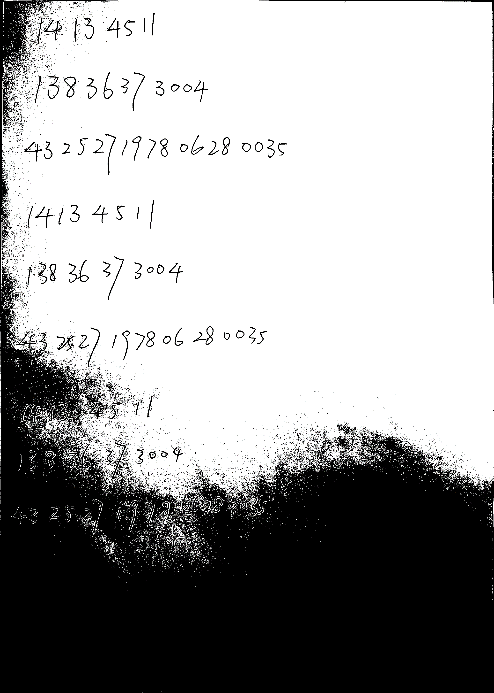 1413 4511
138 36 37 3004
43 25 27 1978 06 28 0035
1413 4511
138 36 37 3004
43 2527 1978 06 28 0035
11
138 37 3004
43 2527 1979